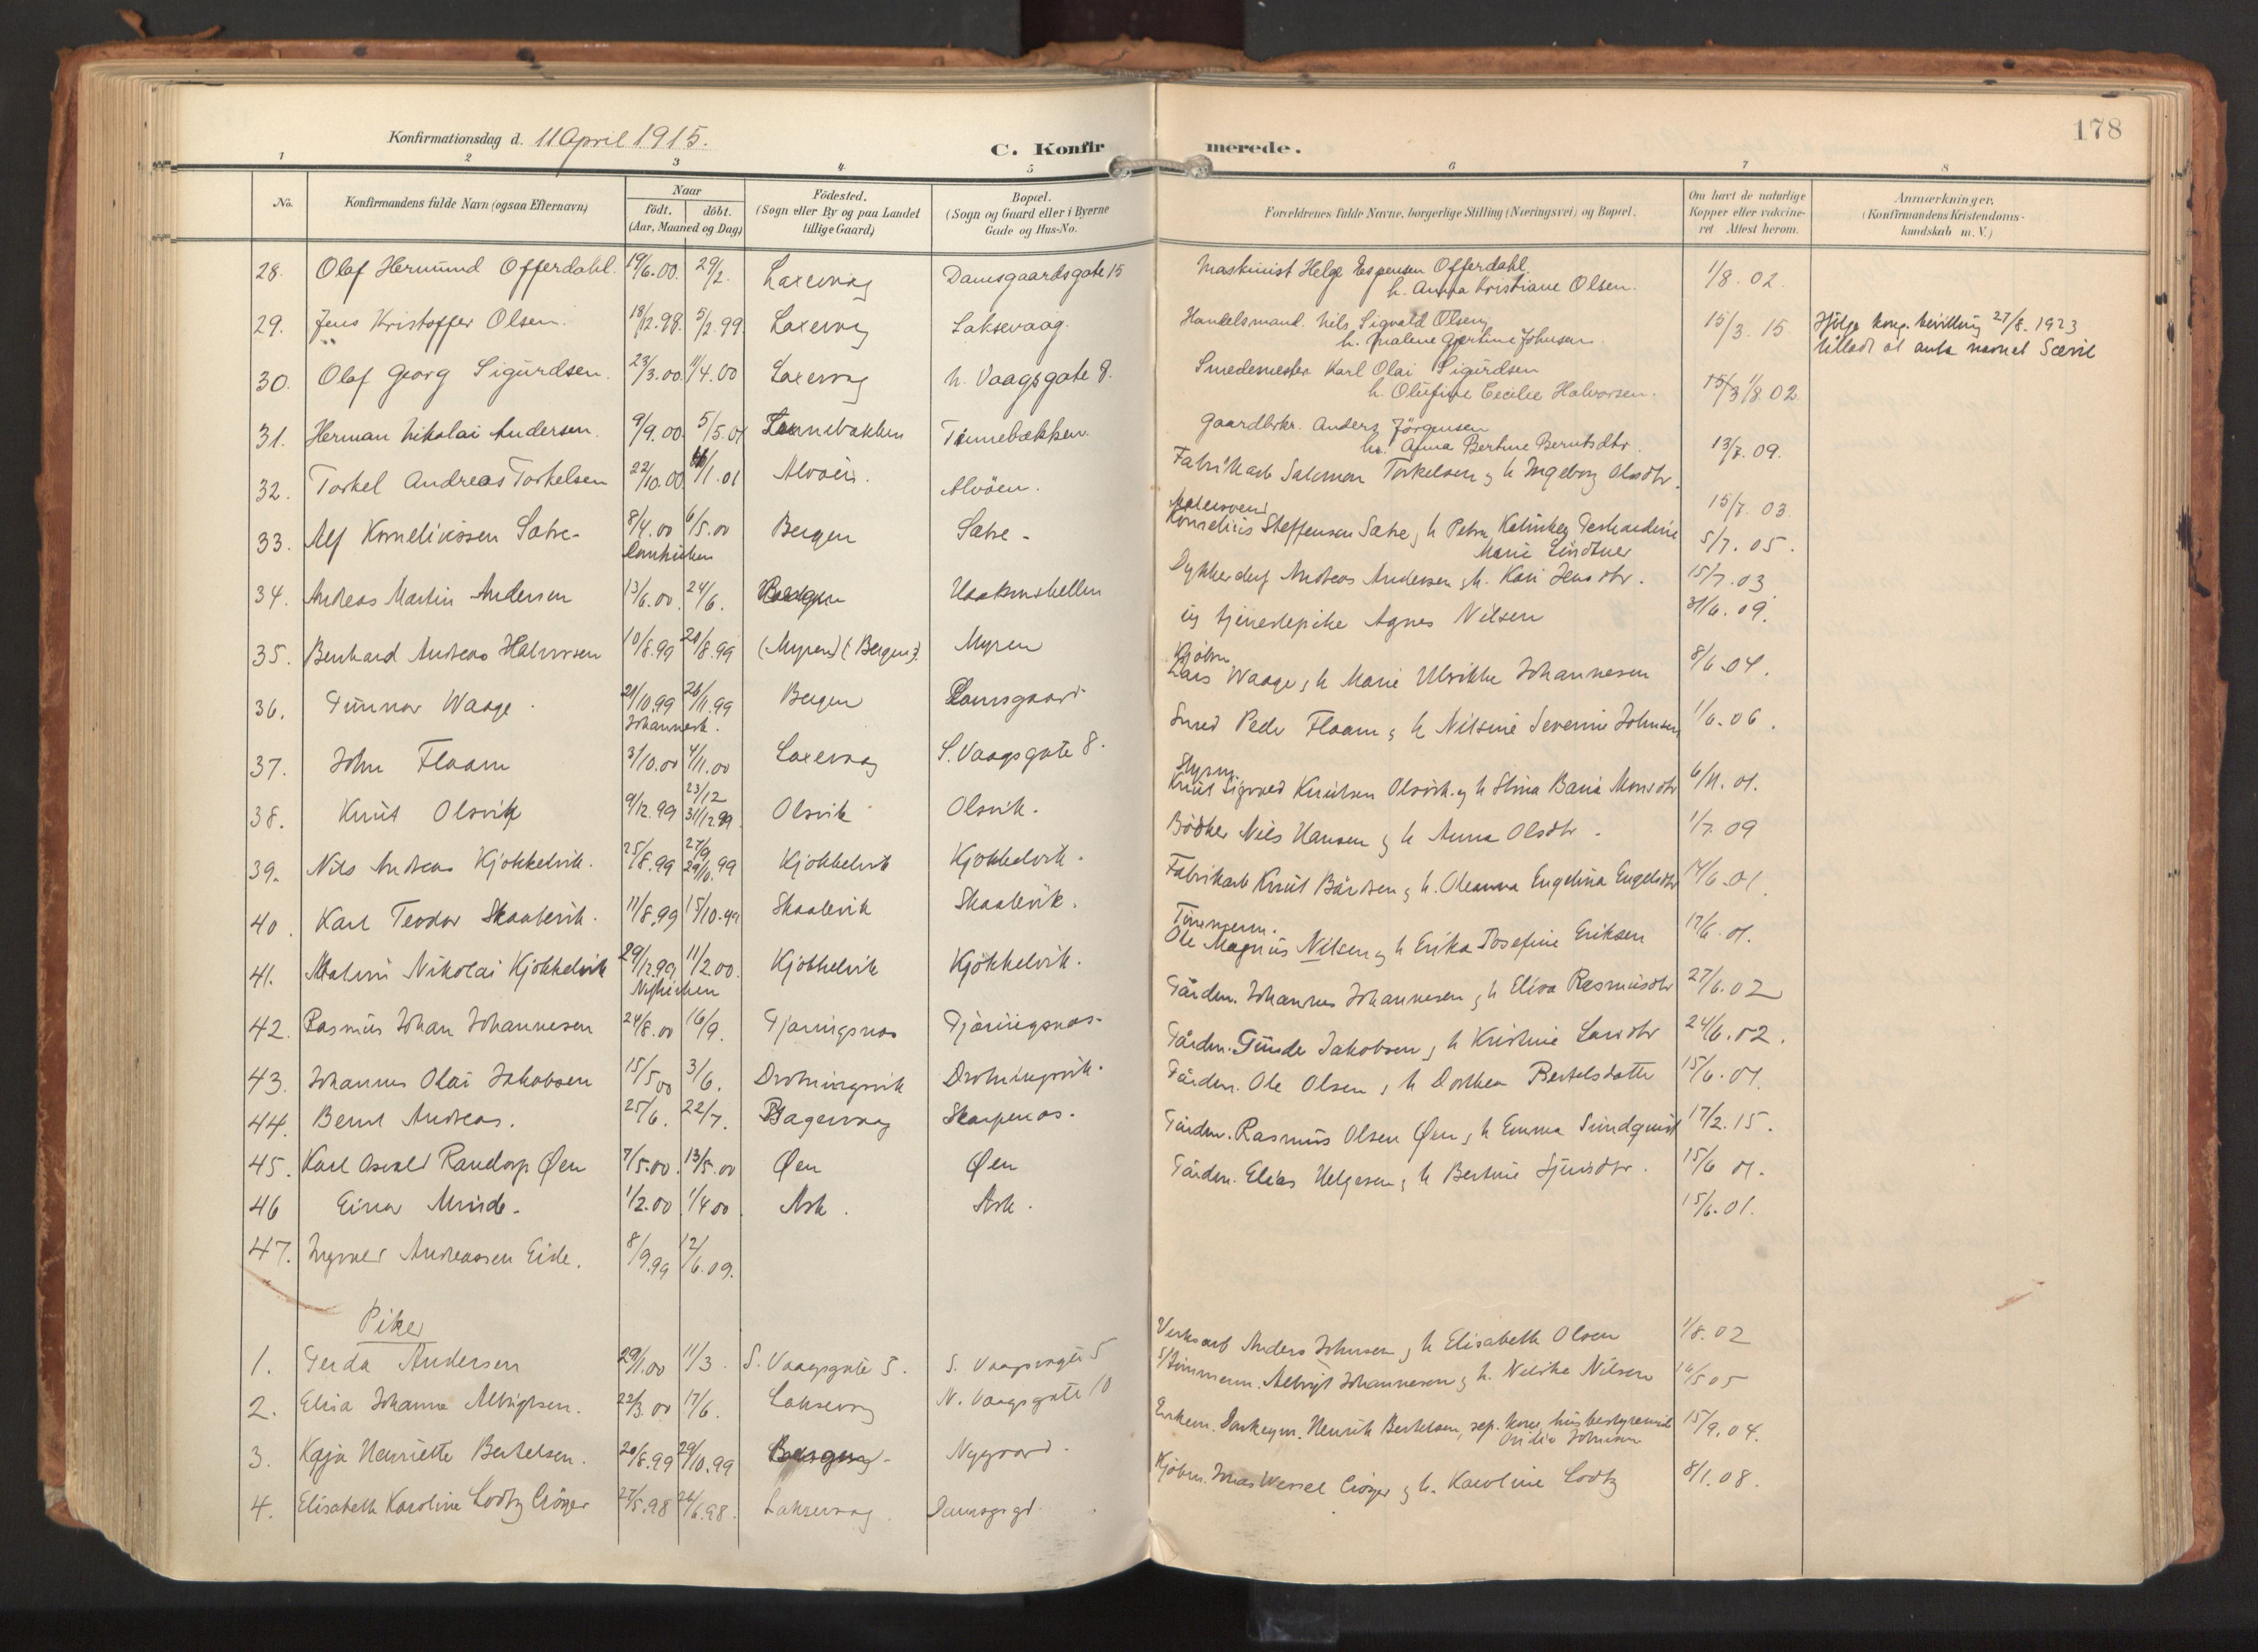 178
Konfirmationsdag d. 11 April 1915.
C. Konfirmerede.
1 2 3 4 5 6 7 8
No.
Konfirmandens fulde Navn (ogsaa Efternavn)
Naar
födt. döbt.
(Aar, Maaned og Dag)
Födested.
(Sogn eller By og paa Landet
tillige Gaard)
Bopæl.
(Sogn og Gaard eller i Byerne
Gade og Hus-No.
Forældrenes fulde Navne, borgerlige Stilling (Næringsvei) og Bopæl.
Om havt de naturlige
Kopper eller vakcine-
ret Attest herom.
Anmærkninger.
(Konfirmandens Kristendoms-
kundskab m. V.)
28. Olaf Hermund Offerdahl. 19/6.00. 29/2. Laxevaag Damsgaardsgate 15 Maskinist Helge Espensen Offerdahl. 1/8.02.
h. Anna Kristiane Olsen.
29. Jens Kristoffer Olsen. 18/12.98. 5/2.99. Laxevaag Laksevaag. Handelsmand. Nils Sigvald Olsen 15/3.15. Ifölge kong. bevilling 27/8.1923
h. Malene Gjertine Johnsen. tilladt at anta navnet Sævil
30. Olaf Georg Sigurdsen. 23/3.00 11/4.00 Laxevaag N. Vaagsgate 8. Smedemester Karl Olai Sigurdsen
h. Olufine Cecilie Halvorsen. 15/3 1/8.02.
31. Herman Nikolai Andersen. 9/9.00. 5/5.01 Tennebakken Tennebakken. Gaardbrkr. Anders Jörgensen
h. Anna Bertine Berntsdtr. 13/7.09.
32. Torkel Andreas Torkelsen 22/10.00 /1.01 Alvöen. Alvöen. Fabrikarb Salomon Torkelsen & h Ingeborg Olsdtr. 15/7.03.
33. Alf Korneliussen Sætre. 8/4.00 6/5.00 Bergen Sætre. Kornelius Steffensen Sætre, h Petra 5/7.05.
Domkirken Marie Lindtner
34. Andreas Martin Andersen 13/6.00. 24/6. Haakonshellen Andreas Andersen, h. Kari Jensdtr. 15/7.03
35. Bernhard Andreas Halvorsen 10/8.99 20/8.99 (Myren) (Bergen). Myren ug tjenestepike Agnes Nilsen 31/6.09.
36. Gunnar Waage. 21/10.99 26/11.99 Bergen Damsgaard Kjöbm.
Johannesk. Lars Waage, h Marie Ulrikke Johannesen 8/6.04.
37. John Flaam 3/10.00 4/11.00 Laxevaag S. Vaagsgate 8. Smed Peder Flaam, h Nilsine Severine Johnsen 1/6.06.
38. Knut Olsvik 9/12.99 23/12 31/12.99. Olsvik Olsvik. Styrm.
Knut Sigvard Knutsen Olsvik & h Stina Monsdtr 6/11.01.
39. Nils Andreas Kjökkelvik. 25/8.99 27/9 29/10.99 Kjökkelvik Kjökkelvik. Bödker Nils Hansen & h Anna Olsdtr. 1/7.09
40. Karl Teodor Skaalevik. 11/8.99 15/10.99 Skaalevik Skaalevik. Fabrikarb Knut Bårdsen & h. Oleanna Engelina Engelsdtr 14/6.01.
41. Malvin Nikolai Kjökkelvik 29/12.99 11/2.00. Kjökkelvik Kjökkelvik. Tömmerm.
Nykirken Ole Magnus Nilsen & h Erika Josefine Eriksen 17/6.01.
42. Rasmus Johan Johannesen 24/8.00 16/9. Gjæringsnæs Gjæringsnæs. Gårdm. Johannes Johannesen, h Elisa Rasmusdtr 27/6.02
43. Johannes Olai Jakobsen 15/5 00 3/6. Drotningsvik Drotningsvik. Gårdm. Gunder Jakobsen, h Kristine Larsdtr 24/6.02.
44. Bernt Andreas. 25/6. 22/7. Skarpenæs. Gårdm. Ole Olsen, h Dorthea Bertelsdatter 15/6.01.
45. Karl Osvald Randorp Øen 7/5.00. 13/5.00 Øen Øen Gårdm. Rasmus Olsen Øen, h Emma Sundquist 17/2.15.
46 Einar Munde. 1/2.00 1/4 00 Ask. Ask. Gårdm. Elias Helgesen, h Bertine Sjursdtr. 15/6 01.
47. Ingvald Andreassen Eide. 8/9.99 12/6.09. 15/6.01.
Piker
1. Gerda Andersen 29/1.00 11/3. S. Vaagsgate 5. S. Vaagsgate 5 Verksarb Anders Johnsen, h Elisabeth Olsen 1/8.02
2. Elisa Johanna Albrigtsen. 22/3.00 17/6. Laksevaag N. Vaagsgate 10 Albrigt Johannesen & h. Nilsen 16/5 05
3. Kaja Henriette Bertelsen. 20/8.99 29/10.99 Nygaard. Henrik Bertelsen, sep. kone, husbestyrerinde 15/9.04.
Johnsen
4. Elisabeth Karoline Lodtz Cröger 27/5.98 26/6.98. Laksevaag. Damsgrd. Kjöbm. Jonas Wessel Cröger & h. Karoline Lodtz 8/1.08.